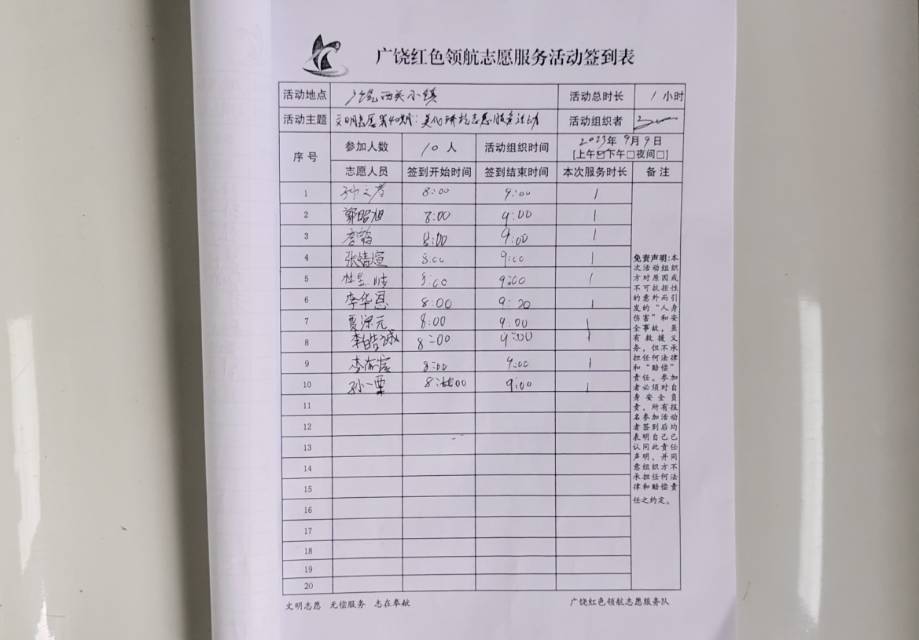 广饶红色领航志愿服务活动签到表
活动地点 广饶西关小镇 活动总时长 1 小时
活动主题 文明志愿第40期: 志愿服务活动 活动组织者
序号 参加人数 10 人 活动组织时间 2023年 9月 9日
[上午☑下午□夜间□]
志愿人员 签到开始时间 签到结束时间 本次服务时长 备注
1 孙 8:00 9:00 1
2 郭昭旭 8:00 9:00 1
3 8:00 9:00 1
4 张婧煊 8:00 9:00 1
5 8:00 9:00 1
6 李华恩 8:00 9:20 1
7 贾深元 8:00 9:00 1
8 李皓诚 8:00 9:00 1
9 李 8:00 9:00 1
10 孙一粟 8:00 9:00 1
11
12
13
14
15
16
17
18
19
20
免责声明:本
次活动组织
方对原因或
不可抗拒性
的意外而引
发的“人身
伤害”和安
全事故,虽
有救援义
务,但不承
担任何法律
和“赔偿”
责任。参加
者必须对自
身安全负
责。所有报
名参加活动
者签到后均
表明自己已
认同此责任
声明,并同
意组织方不
承担任何法
律和赔偿责
任之约定。
文明志愿 无偿服务 志在奉献 广饶红色领航志愿服务队